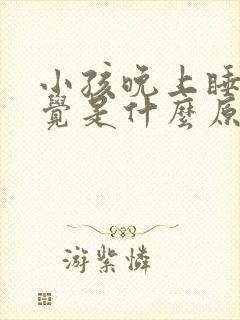 小孩晚上睡
覺是什麼原
游紫憐